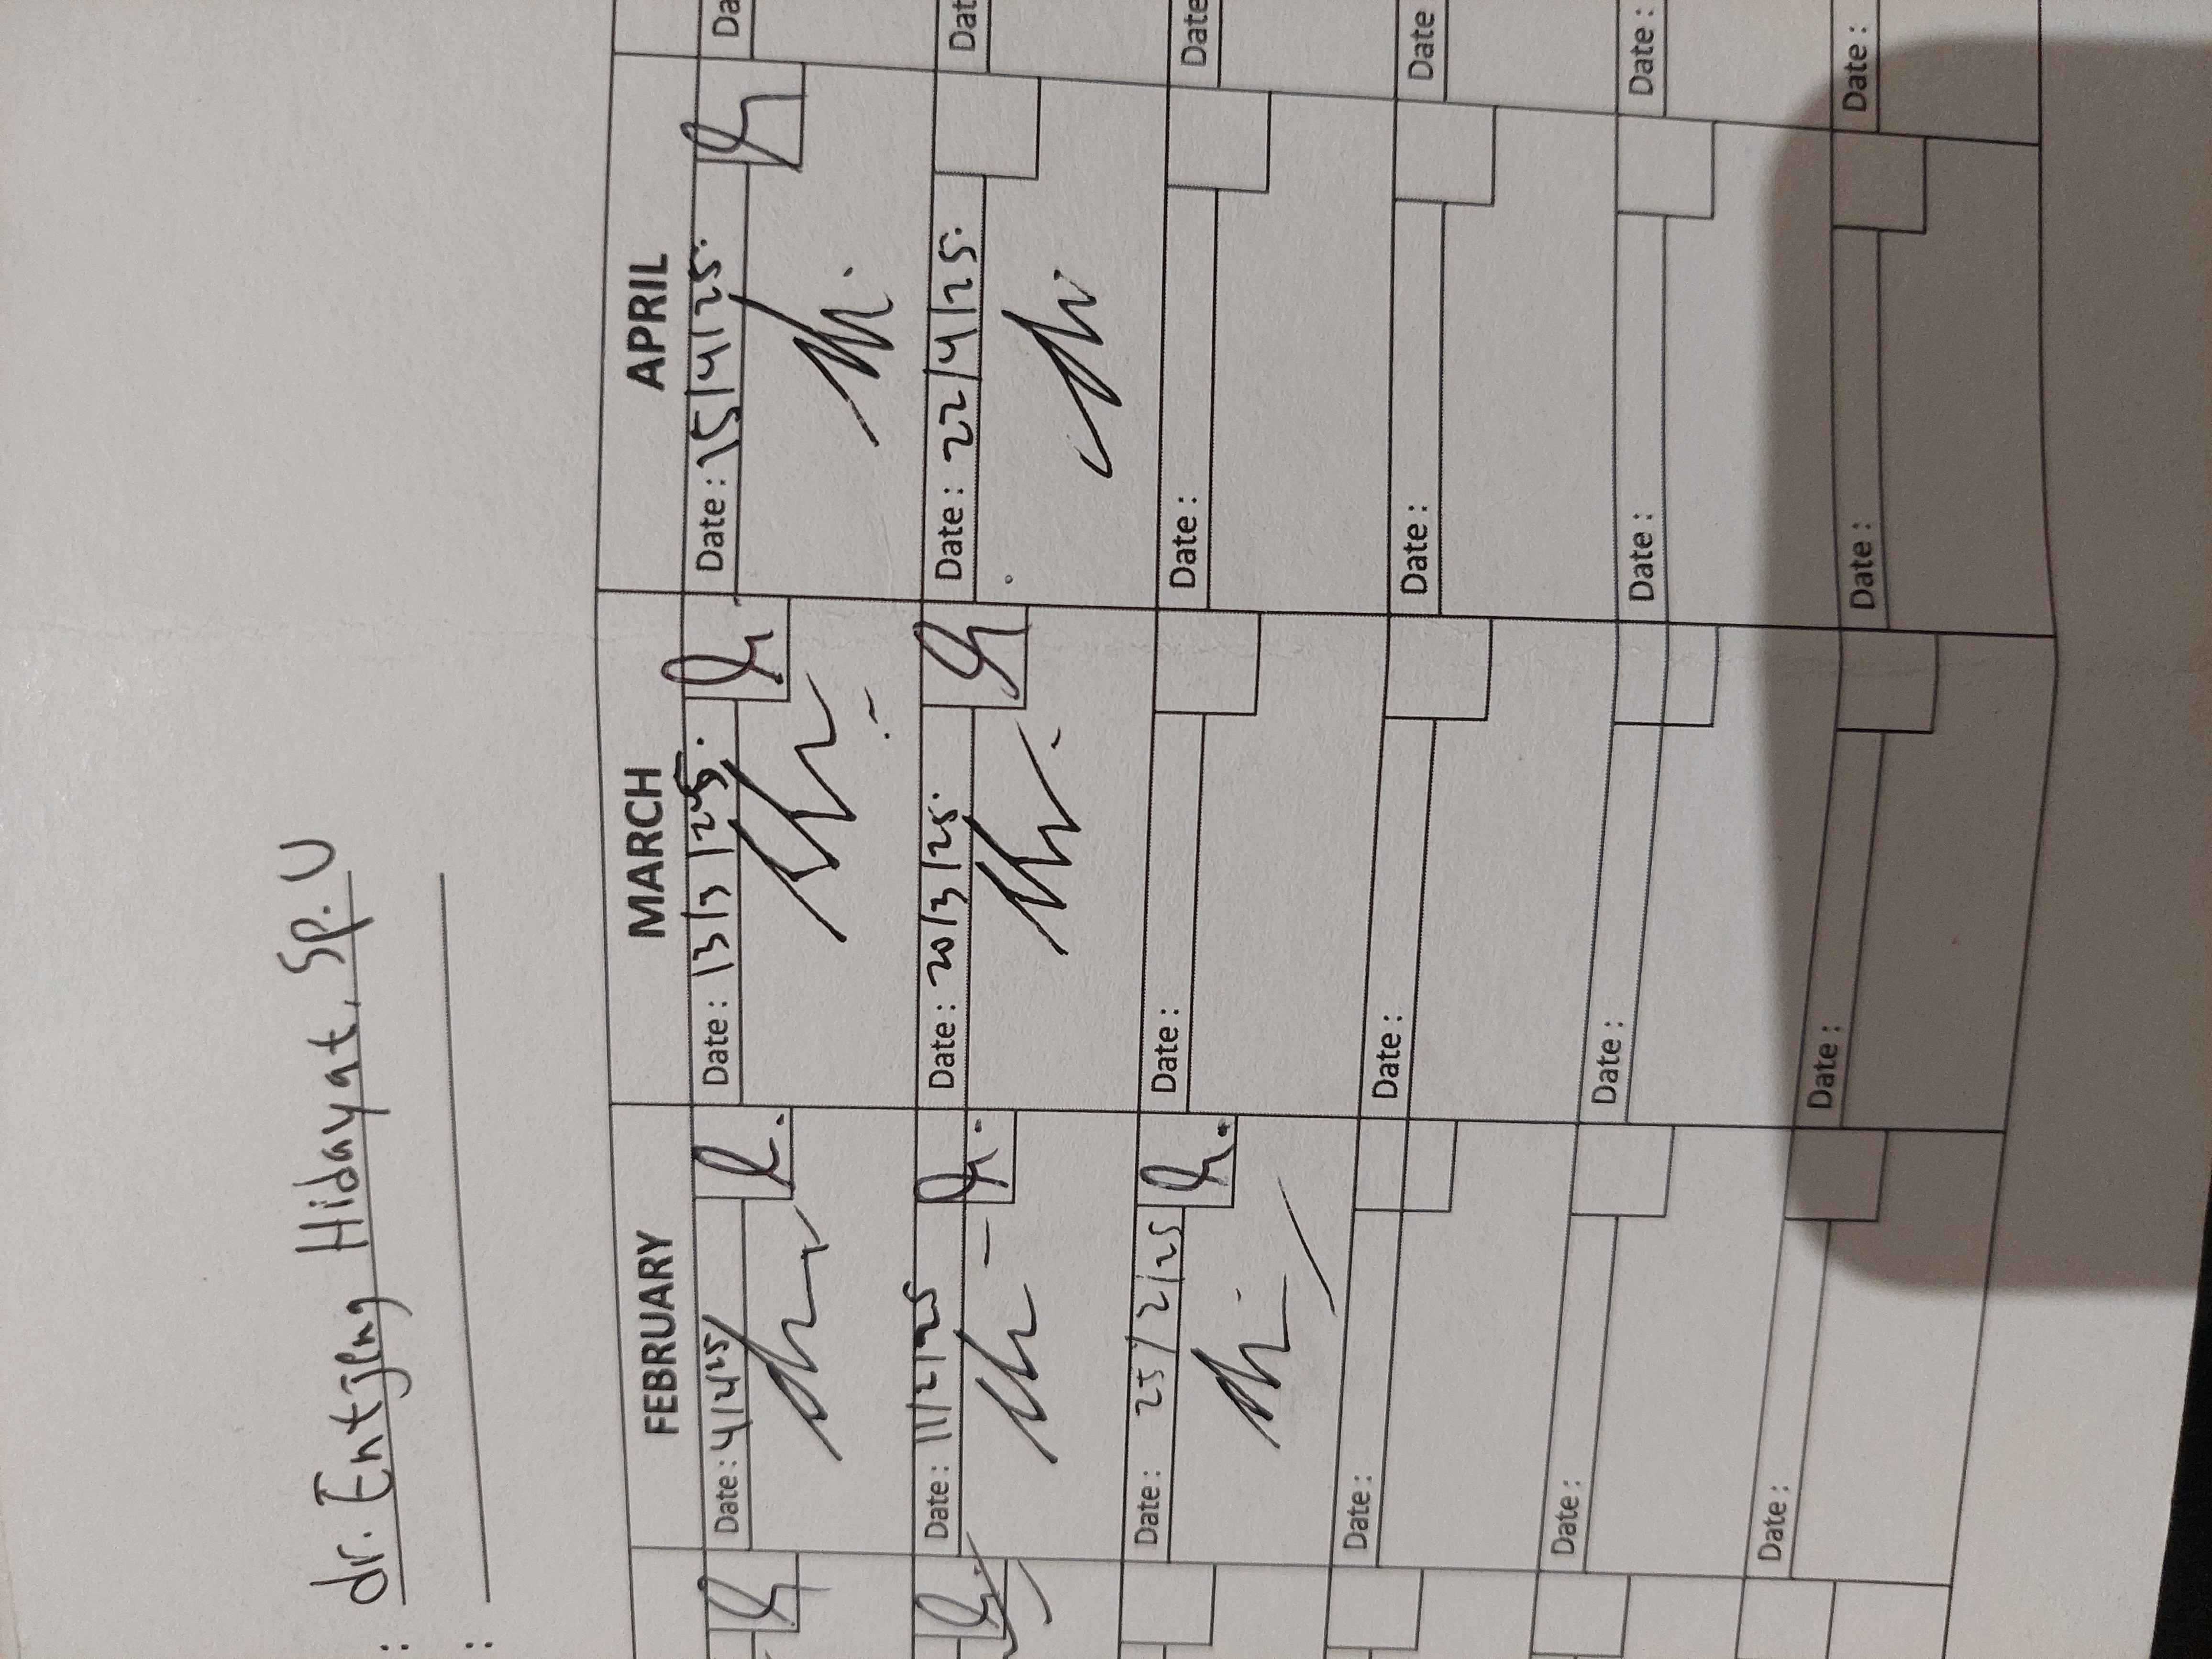 : dr. Entjeng Hidayat, Sp. U
:
FEBRUARY MARCH APRIL
Date : 4/2/25 Date : 13/3/25. Date : 15/4/25. Da
Date : 11/2/25 Date : 20/3/25. Date : 22/4/25. Dat
Date : 25/2/25 Date : Date : Date
Date : Date : Date : Date
Date : Date : Date : Date :
Date : Date : Date : Date :